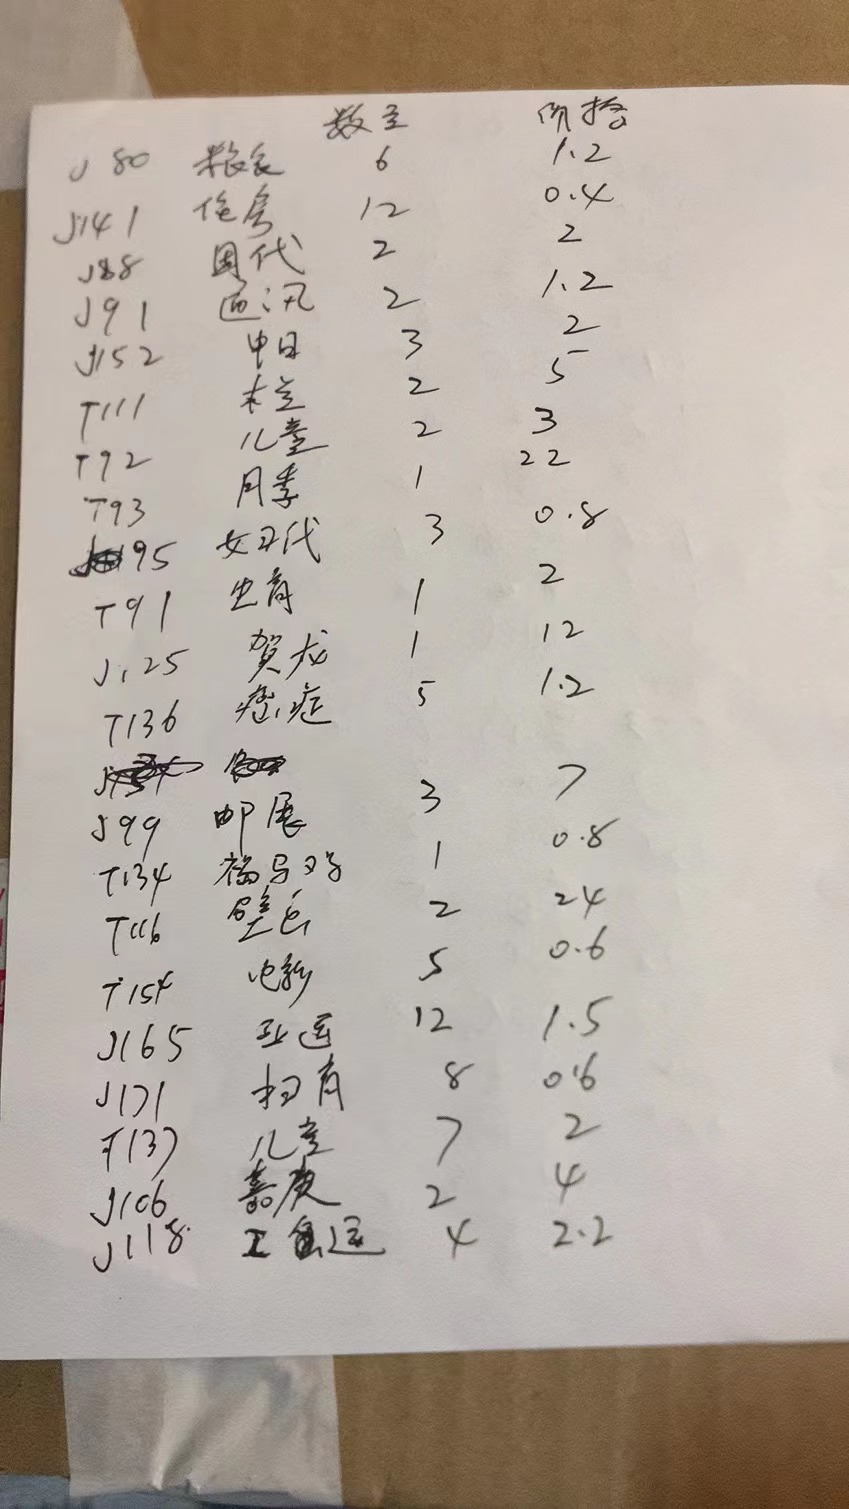 数主 价拾
J 80 粮食 6 1.2
J141 住房 12 0.4
J88 国代 2 2
J91 通汛 2 1.2
J152 中日 3 2
T111 木兰 2 5
T92 儿童 2 3
T93 月季 1 22
95 女卫代 3 0.8
T91 生育 1 2
J125 贺龙 1 12
T136 癌症 5 1.2
J99 邮展 3 7
T134 1 0.8
T116 壁画 2 24
T154 电影 5 0.6
J165 亚运 12 1.5
J171 扫育 8 0.6
T137 儿童 7 2
J106 嘉庚 2 4
J118 工 运 4 2.2